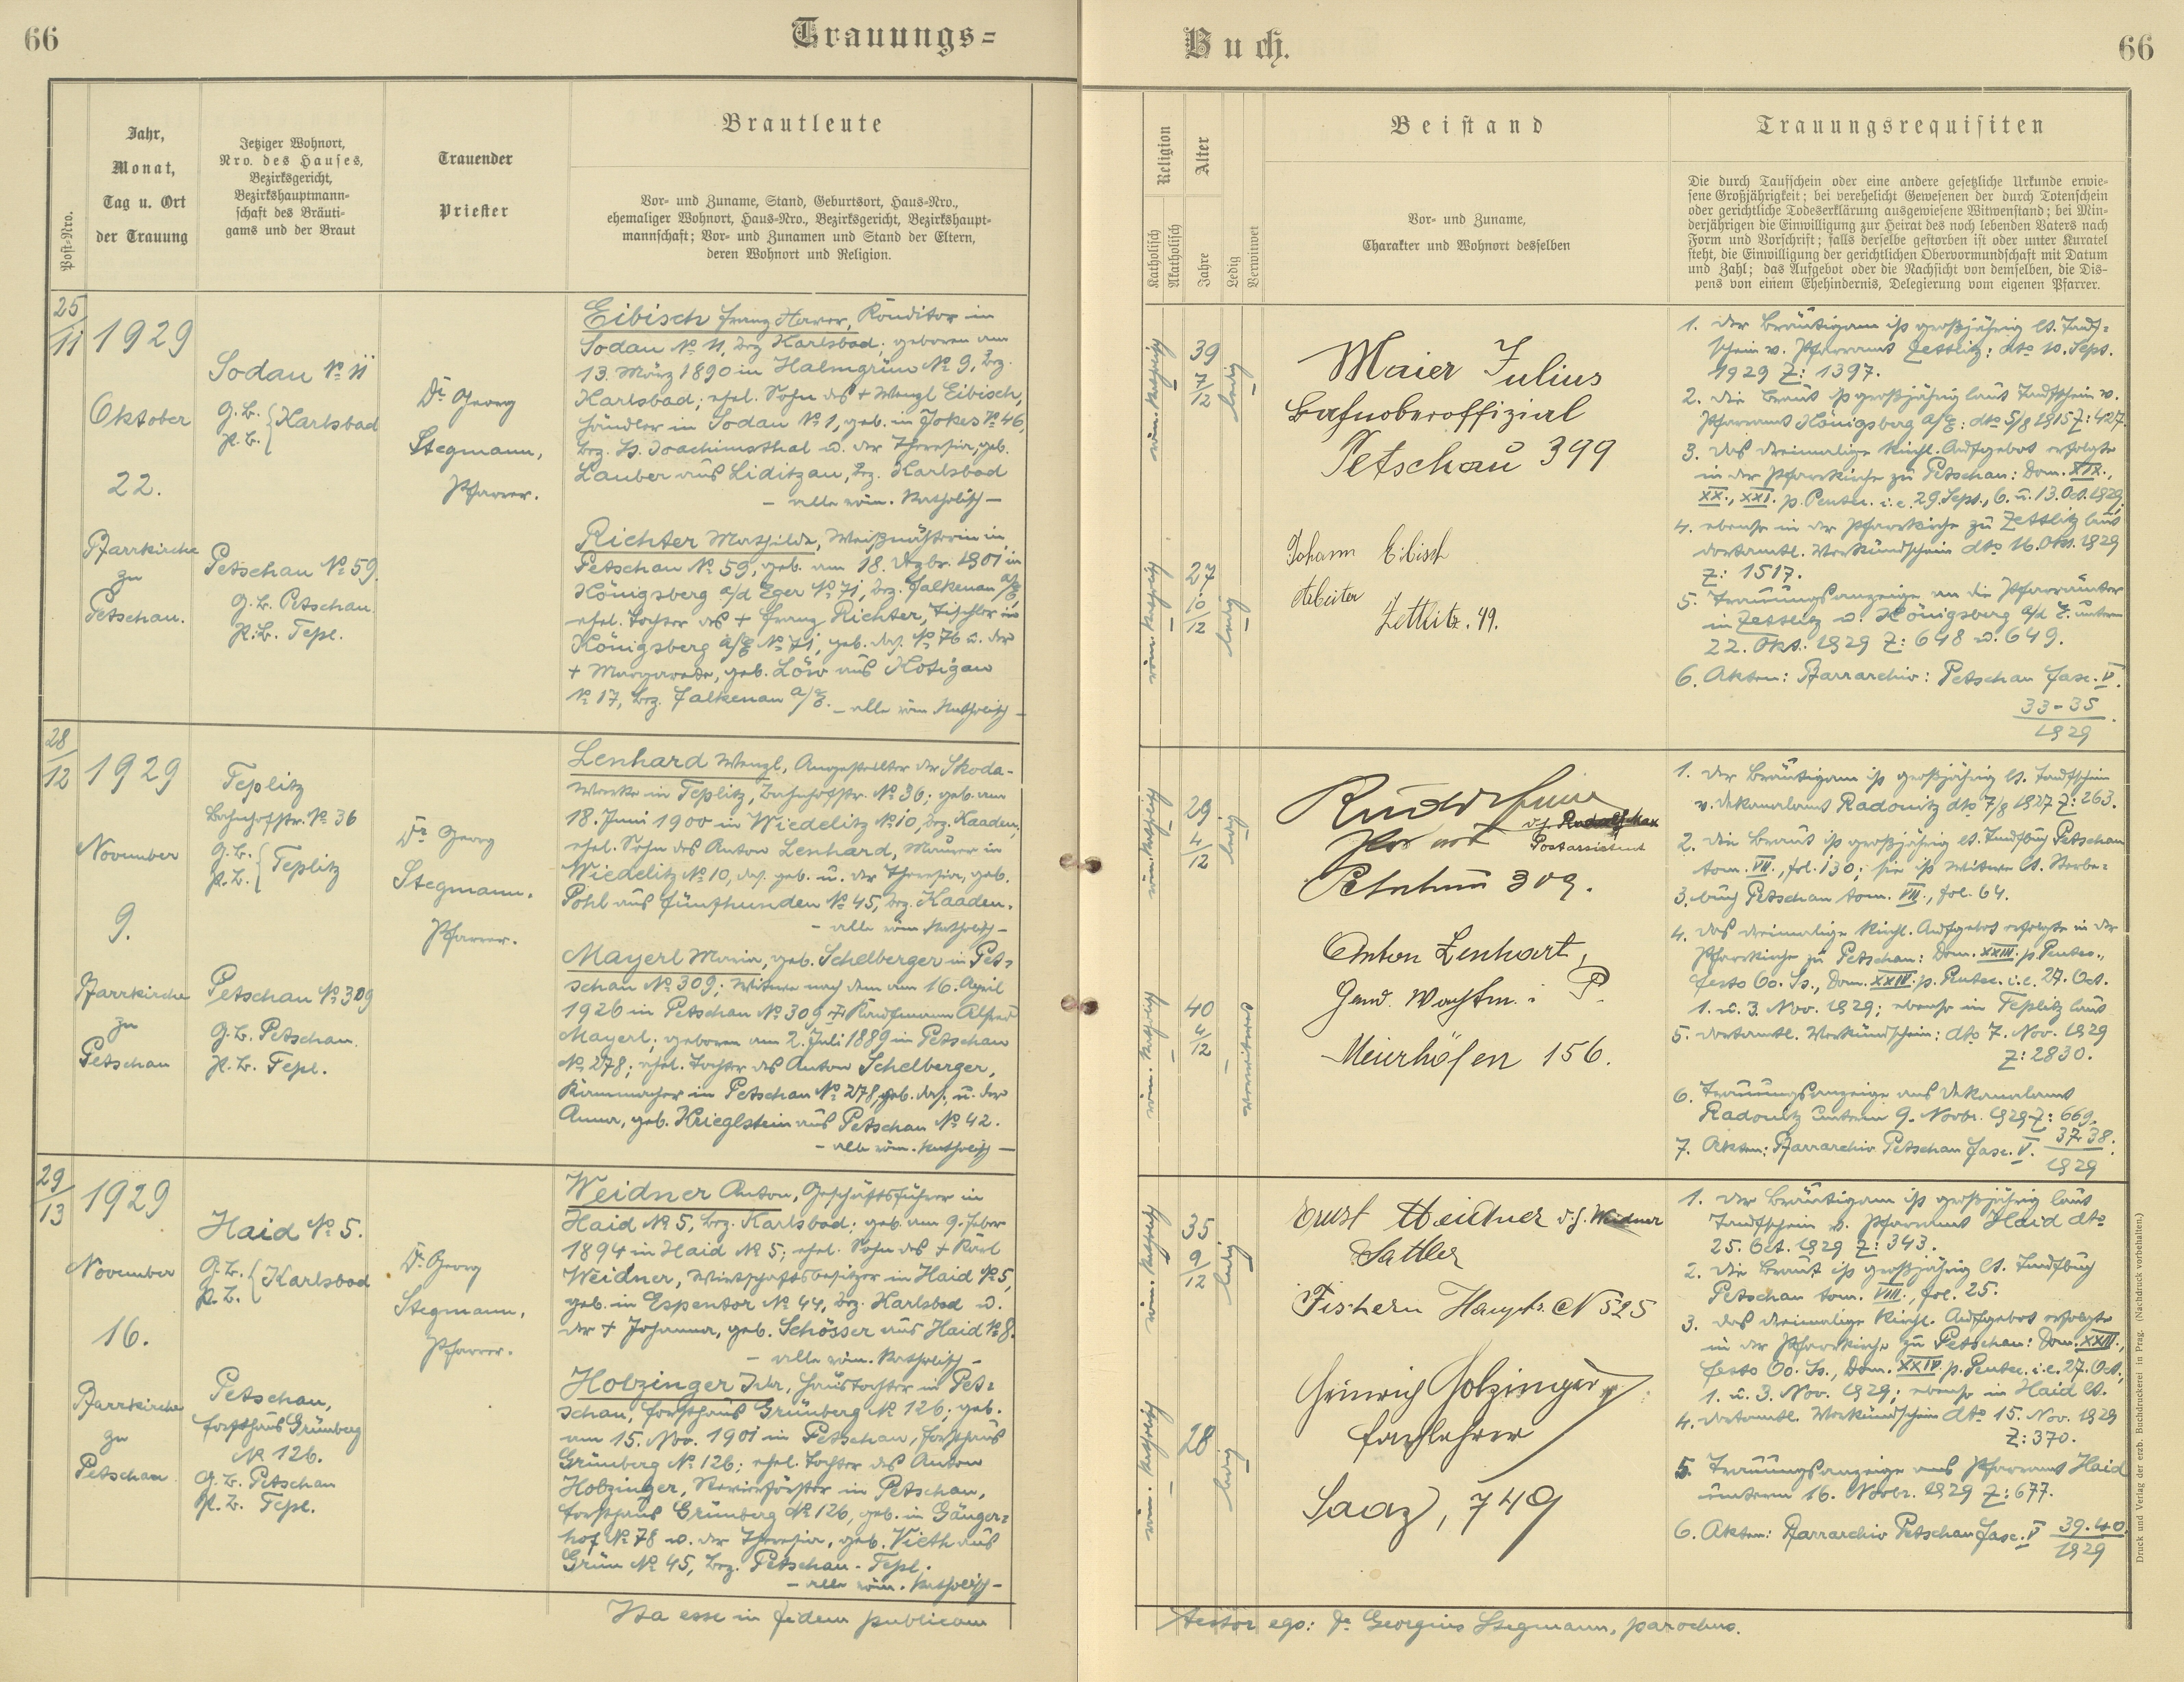 66
Trauungs=
Buch.
66
Post=Nro.
Jahr,
Monat,
Tag u. Ort
der Trauung
Jetziger Wohnort,
Nro. des Hauses,
Bezirksgericht,
Bezirkshauptmann=
schaft des Bräuti=
gams und der Braut
Trauender
Priester
Brautleute
Vor= und Zuname, Stand, Geburtsort, Haus=Nro.,
ehemaliger Wohnort, Haus=Nro., Bezirksgericht, Bezirkshaupt=
mannschaft; Vor= und Zunamen und Stand der Eltern,
deren Wohnort und Religion.
Religion
Katholisch
Akatholisch
Alter
Jahre
Ledig
Verwitwet
Beistand
Vor= und Zuname,
Charakter und Wohnort desselben
Trauungsrequisiten
Die durch Taufschein oder eine andere gesetzliche Urkunde erwie=
sene Großjährigkeit; bei verehelicht Gewesenen der durch Totenschein
oder gerichtliche Todeserklärung ausgewiesene Witwenstand; bei Min=
derjährigen die Einwilligung zur Heirat des noch lebenden Vaters nach
Form und Vorschrift; falls derselbe gestorben ist oder unter Kuratel
steht, die Einwilligung der gerichtlichen Obervormundschaft mit Datum
und Zahl; das Aufgebot oder die Nachsicht von demselben, die Dis=
pens von einem Ehehindernis, Delegierung vom eigenen Pfarrer.
25/11
1929
Oktober
22.
Pfarrkirche
zu
Petschau.
Sodau № 11
G.B. { Karlsbad
P.B.
Petschau № 59.
G.B. Petschau
P.B. Tepl.
Dr. Georg
Stegmann,
Pfarrer.
Eibisch Franz Xaver, Konditor in
Sodau № 11, Bez. Karlsbad; geboren am
13. März 1890 in Halmgrün № 9, Bez.
Karlsbad; ehel. Sohn des + Wenzl Eibisch,
Händler in Sodau № 1, geb. in Jokes № 46,
Bez. St. Joachimsthal u. der Theresia, geb.
Lauber aus Liditzau, Bez. Karlsbad
– alle röm. katholisch –
Richter Mathilde, Weißnähterin in
Petschau № 59, geb. am 18. Dzbr. 1901 in
Königsberg a/d Eger № 71, Bez. Falkenau a/E,
ehel. Tochter des + Franz Richter, Tischler in
Königsberg a/E № 71, geb. das. № 76 u. der
+ Margarete, geb. Löw aus Kotigau
№ 17, Bez. Falkenau a/E. – alle röm. katholisch –
röm. katholisch
39 7/12
ledig
röm. katholisch
27 10/12
ledig
Maier Julius
Bahnoberoffizial
Petschau 399
Johann Eibisch
Arbeiter
Zettlitz. 49.
1. Der Bräutigam ist großjährig lt. Tauf=
schein v. Pfarramt Zettlitz: dto 10. Sept.
1929 Z: 1397.
2. Die Braut ist großjährig laut Taufschein v.
Pfarramt Königsberg a/E: dto 5/8 1915 Z: 427.
3. Das dreimalige kirchl. Aufgebot erfolgte
in der Pfarrkirche zu Petschau: Dom. XIX.,
XX., XXI. p. Pentec. i.e. 29. Sept., 6. u. 13. Oct. 1929,
4. ebenso in der Pfarrkirche zu Zettlitz laut
dortamtl. Verkündschein dto 16. Okt. 1929
Z: 1517.
5. Trauungsanzeige an die Pfarrämter
in Zettlitz u. Königsberg a/d E. unterm
22. Okt. 1929 Z: 648 u. 649.
6. Akten: Pfarrarchiv: Petschau Fasc. V.
33-35
1929
28/12
1929
November
9.
Pfarrkirche
zu
Petschau
Teplitz
Bahnhofstr. № 36
G.B. { Teplitz
P.B.
Petschau № 309
G.B. Petschau
P.B. Tepl.
Dr. Georg
Stegmann.
Pfarrer.
Lenhard Wenzl, Angestellter der Skoda-
Werke in Teplitz, Bahnhofstr. № 36; geb. am
18. Juni 1900 in Wiedelitz № 10, Bez. Kaaden;
ehel. Sohn des Anton Lenhard, Maurer in
Wiedelitz № 10, das. geb. u. der Theresia, geb.
Pohl aus Fünfhunden № 45, Bez. Kaaden.
– alle röm. katholisch –
Mayerl Maria, geb. Schelberger in Pet=
schau № 309; Witwe nach dem am 16. April
1926 in Petschau № 309 + Kaufmann Alfred
Mayerl; geboren am 2. Juli 1889 in Petschau
№ 278; ehel. Tochter des Anton Schelberger,
Kammacher in Petschau № 278, geb. das., u. der
Anna, geb. Krieglstein aus Petschau № 42.
– alle röm. katholisch –
röm. katholisch
29 4/12
ledig
röm. katholisch
40 4/12
verwitwet
Postassistent
309.
Anton Lenhart,
Gend. Wachtm. i. P.
Meierhöfen 156.
1. Der Bräutigam ist großjährig lt. Taufschein
v. Dekanalamt Radonitz dto 7/8 1927 Z: 263.
2. Die Braut ist großjährig lt. Taufbuch Petschau
tom. VII., fol. 130; sie ist Witwe lt. Sterbe=
3. buch Petschau tom. VII., fol. 64.
4. Das dreimalige kirchl. Aufgebot erfolgte in der
Pfarrkirche zu Petschau: Dom. XXIII. p. Pentec.,
festo Oo. Ss., Dom. XXIV. p. Pentec. i.e. 27. Oct.
1. u. 3. Nov. 1929; ebenso in Teplitz laut
5. dortamtl. Verkündschein: dto 7. Nov. 1929
Z: 2830.
6. Trauungsanzeige ans Dekanalamt
Radonitz unterm 9. Novbr. 1929 Z: 669.
7. Akten: Pfarrarchiv Petschau Fasc. V. 37.38.
1929
29/13
1929
November
16.
Pfarrkirche
zu
Petschau
Haid № 5.
G.B. { Karlsbad
P.B.
Petschau,
Forsthaus Grünberg
№ 126.
G.B. Petschau
P.B. Tepl.
Dr. Georg
Stegmann,
Pfarrer.
Weidner Anton, Geschäftsführer in
Haid № 5, Bez. Karlsbad; geb. am 9. Feber
1894 in Haid № 5; ehel. Sohn des + Karl
Weidner, Wirtschaftsbesitzer in Haid № 5,
geb. in Espentor № 44, Bez. Karlsbad u.
der + Johanna, geb. Schösser aus Haid № 8.
– alle röm. katholisch –
Holzinger Ida, Haustochter in Pet=
schau, Forsthaus Grünberg № 126; geb.
am 15. Nov. 1901 in Petschau, Forsthaus
Grünberg № 126; ehel. Tochter des Anton
Holzinger, Revierförster in Petschau,
Forsthaus Grünberg № 126, geb. in Gänger=
hof № 78 u. der Theresia, geb. Vieth aus
Grün № 45, Bez. Petschau - Tepl.
– alle röm. katholisch –
röm. katholisch
35 9/12
ledig
röm. katholisch
28
ledig
Ernst Weidner d.J. Weidner
Sattler
Fischern Hauptstr. № 525
Heinrich Holzinger
Fachlehrer
Saaz, 749
1. Der Bräutigam ist großjährig laut
Taufschein v. Pfarramt Haid dto
25. Oct. 1929 Z: 343.
2. Die Braut ist großjährig lt. Taufbuch
Petschau tom. VIII., fol. 25.
3. Das dreimalige kirchl. Aufgebot erfolgte
in der Pfarrkirche zu Petschau: Dom. XXIII.,
festo Oo. Ss., Dom. XXIV. p. Pentec. i.e. 27. Oct.,
1. u. 3. Nov. 1929; ebenso in Haid lt.
4. dortamtl. Verkündschein dto 15. Nov. 1929
Z: 370.
5. Trauungsanzeige ans Pfarramt Haid
unterm 16. Novbr. 1929 Z: 677.
6. Akten: Pfarrarchiv Petschau Fasc. V 39.40
1929
Ita esse in fidem publicam
testor ego: Dr. Georgius Stegmann, parochus.
Druck und Verlag der erzb. Buchdruckerei in Prag. (Nachdruck vorbehalten.)